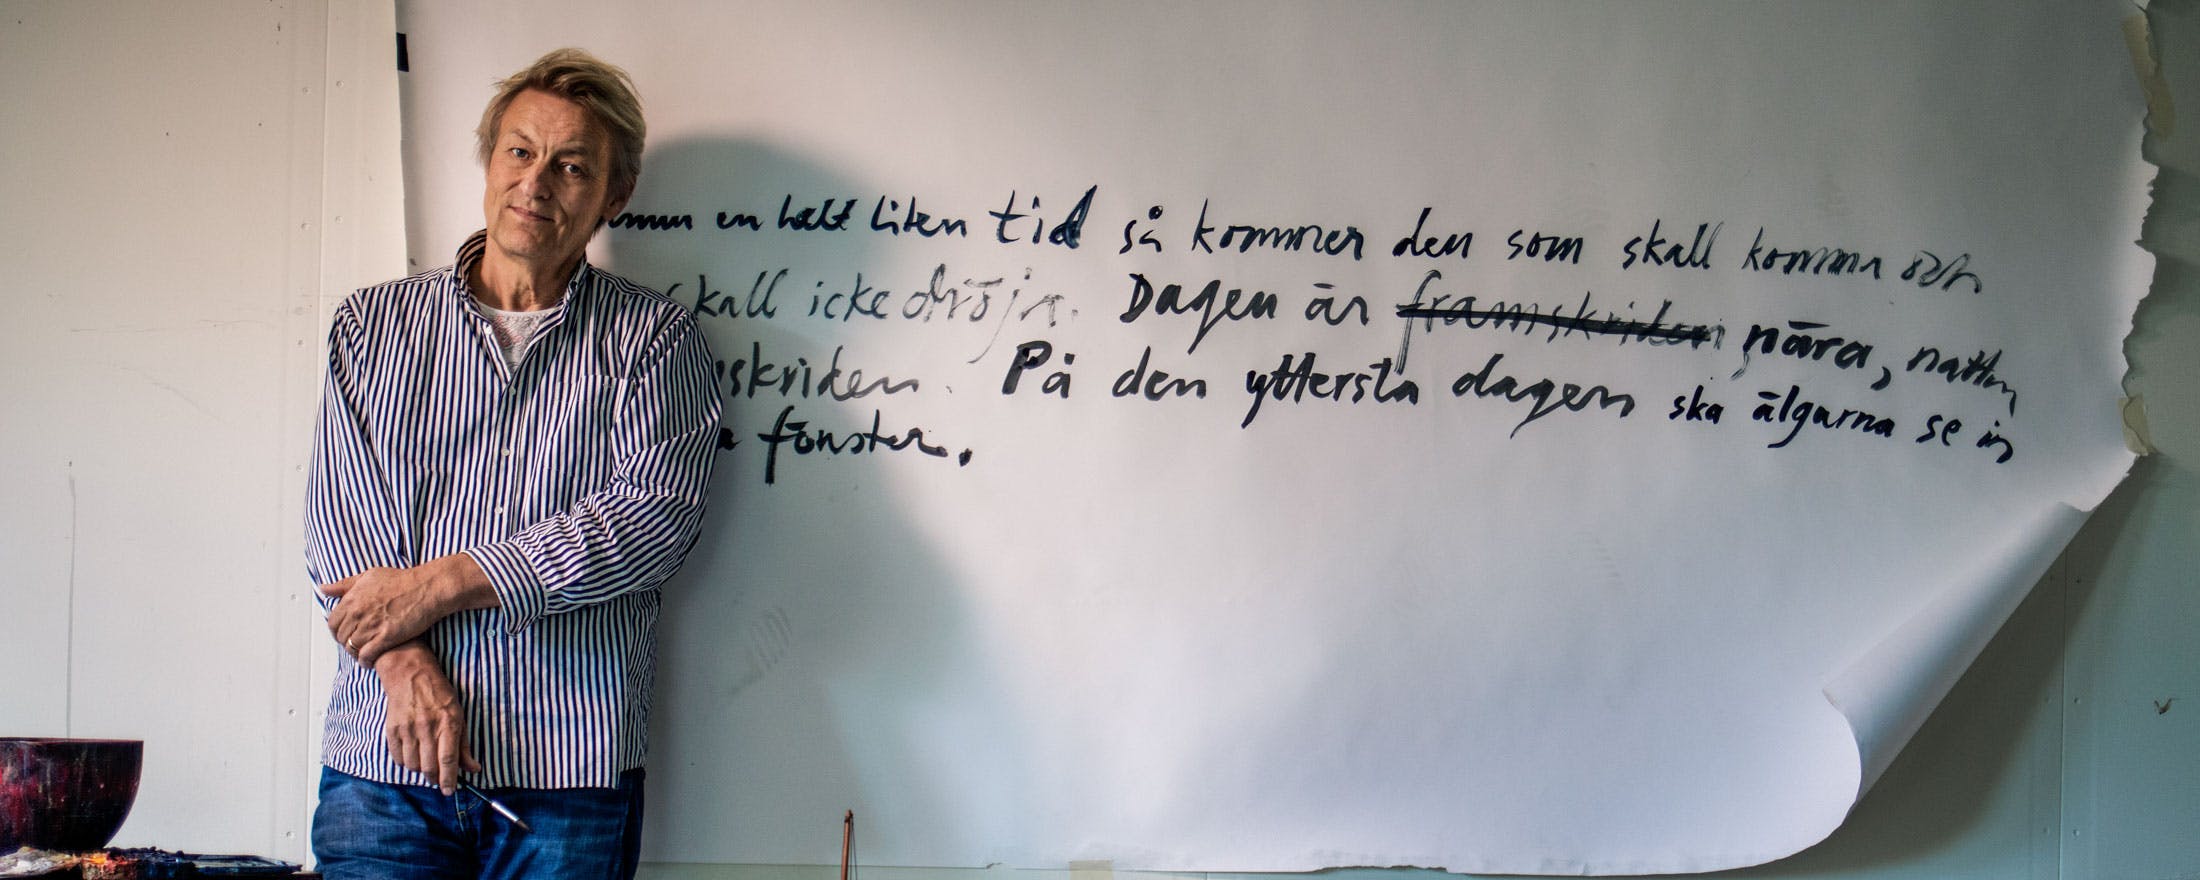 en helt liten tid så kommer den som skall komma och
skall icke dröja. Dagen är framskriden nära, natten
skriden. På den yttersta dagen ska älgarna se in
fönster.